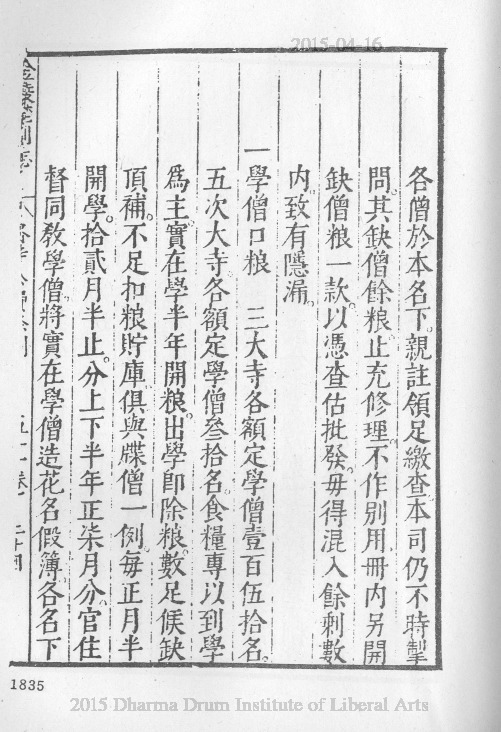 2015-04-16
各僧於本名下。親註領足繳查。本司仍不時掣
問。其缺僧餘粮。止充修理。不作別用。冊內另開
缺僧粮一款。以憑查估批發。毋得混入餘剩數
內。致有隱漏。
一學僧口粮　三大寺各額定學僧壹百伍拾名。
五次大寺各額定學僧叁拾名。食糧專以到學
爲主。實在學半年開粮。出學卽除粮。數足候缺
頂補。不足扣粮貯庫。俱與牒僧一例。每正月半
開學。拾貳月半止。分上下半年正柒月分。官住
督同教學僧。將實在學僧造花名假簿。各名下
1835
2015 Dharma Drum Institute of Liberal Arts